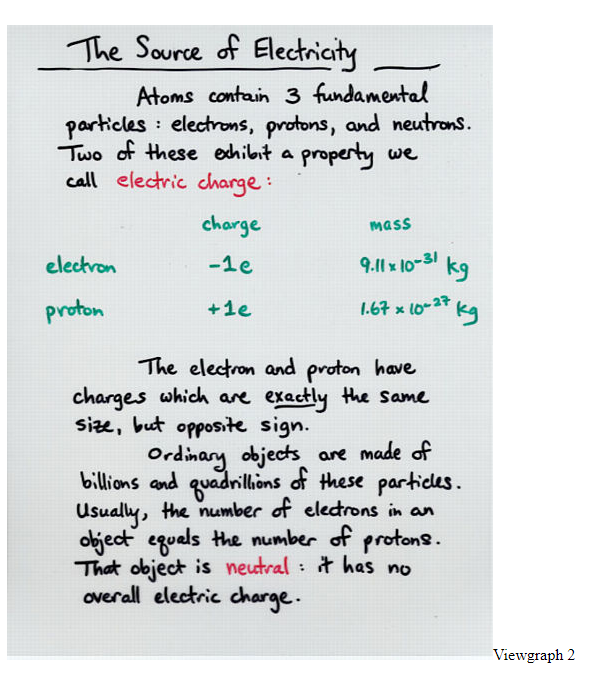 The Source of Electricity
Atoms contain 3 fundamental
particles : electrons, protons, and neutrons.
Two of these exhibit a property we
call electric charge :
charge mass
electron -1e 9.11 x 10-31 kg
proton +1e 1.67 x 10-27 kg
The electron and proton have
charges which are exactly the same
size, but opposite sign.
Ordinary objects are made of
billions and quadrillions of these particles.
Usually, the number of electrons in an
object equals the number of protons.
That object is neutral : it has no
overall electric charge.
Viewgraph 2